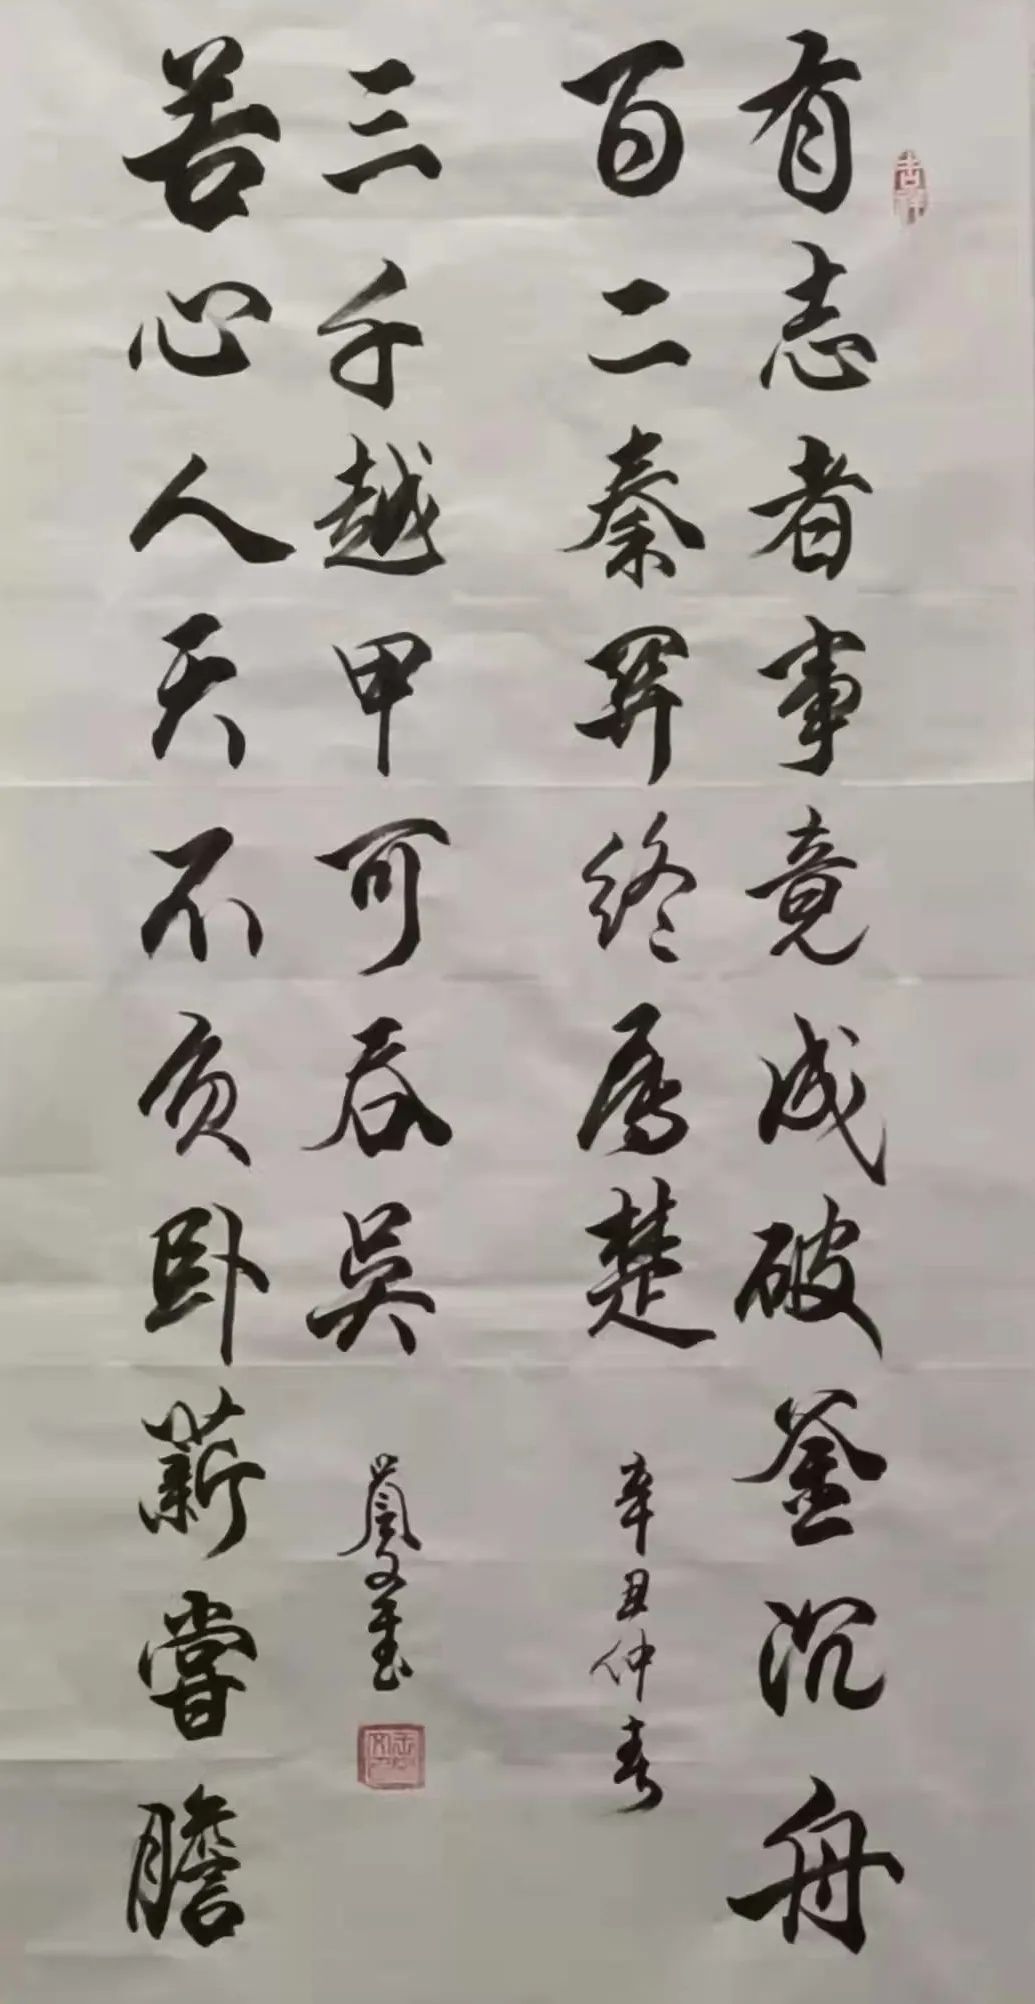 有志者事竟成破釜沉舟
百二秦關終属楚
辛丑仲春
苦心人天不負卧薪嘗膽
三千越甲可吞吳